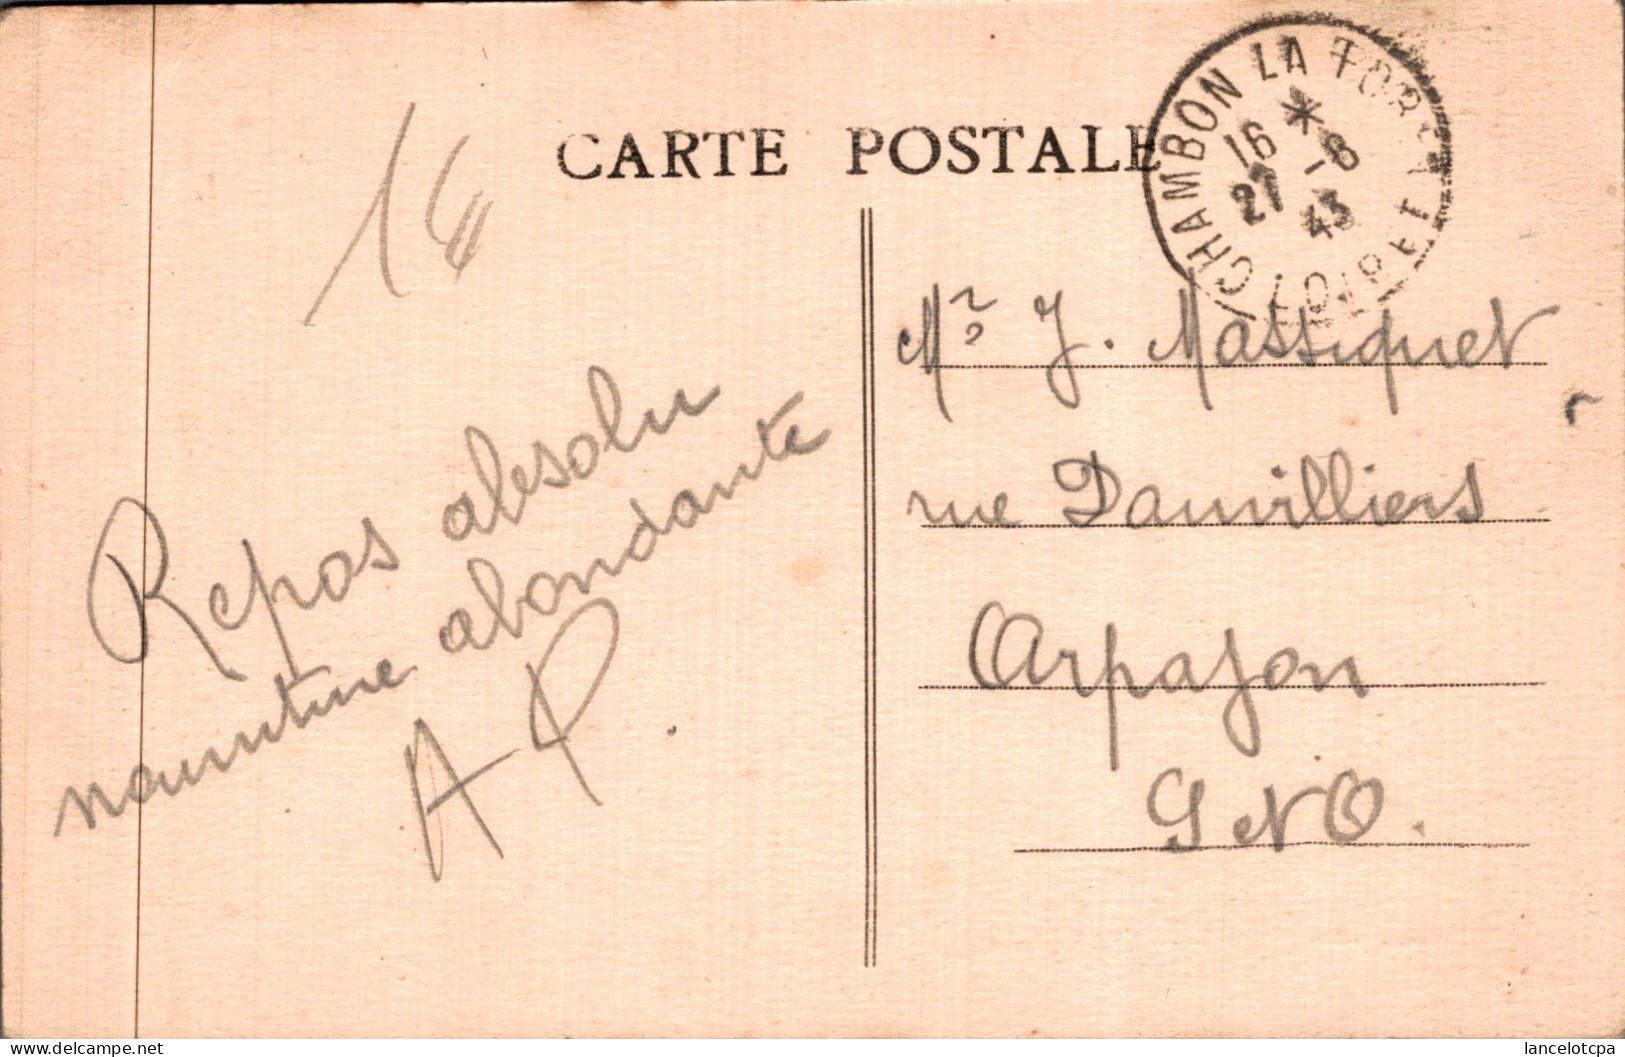 CARTE POSTALE
CHAMBON LA FORET
16 * 27 -8 43
LOIRET
1€
Repos absolu
nourriture abondante
A P.
Mr J. Massiquet
rue Dauvilliers
Arpajon
S et O.
www.delcampe.net
lancelotcpa